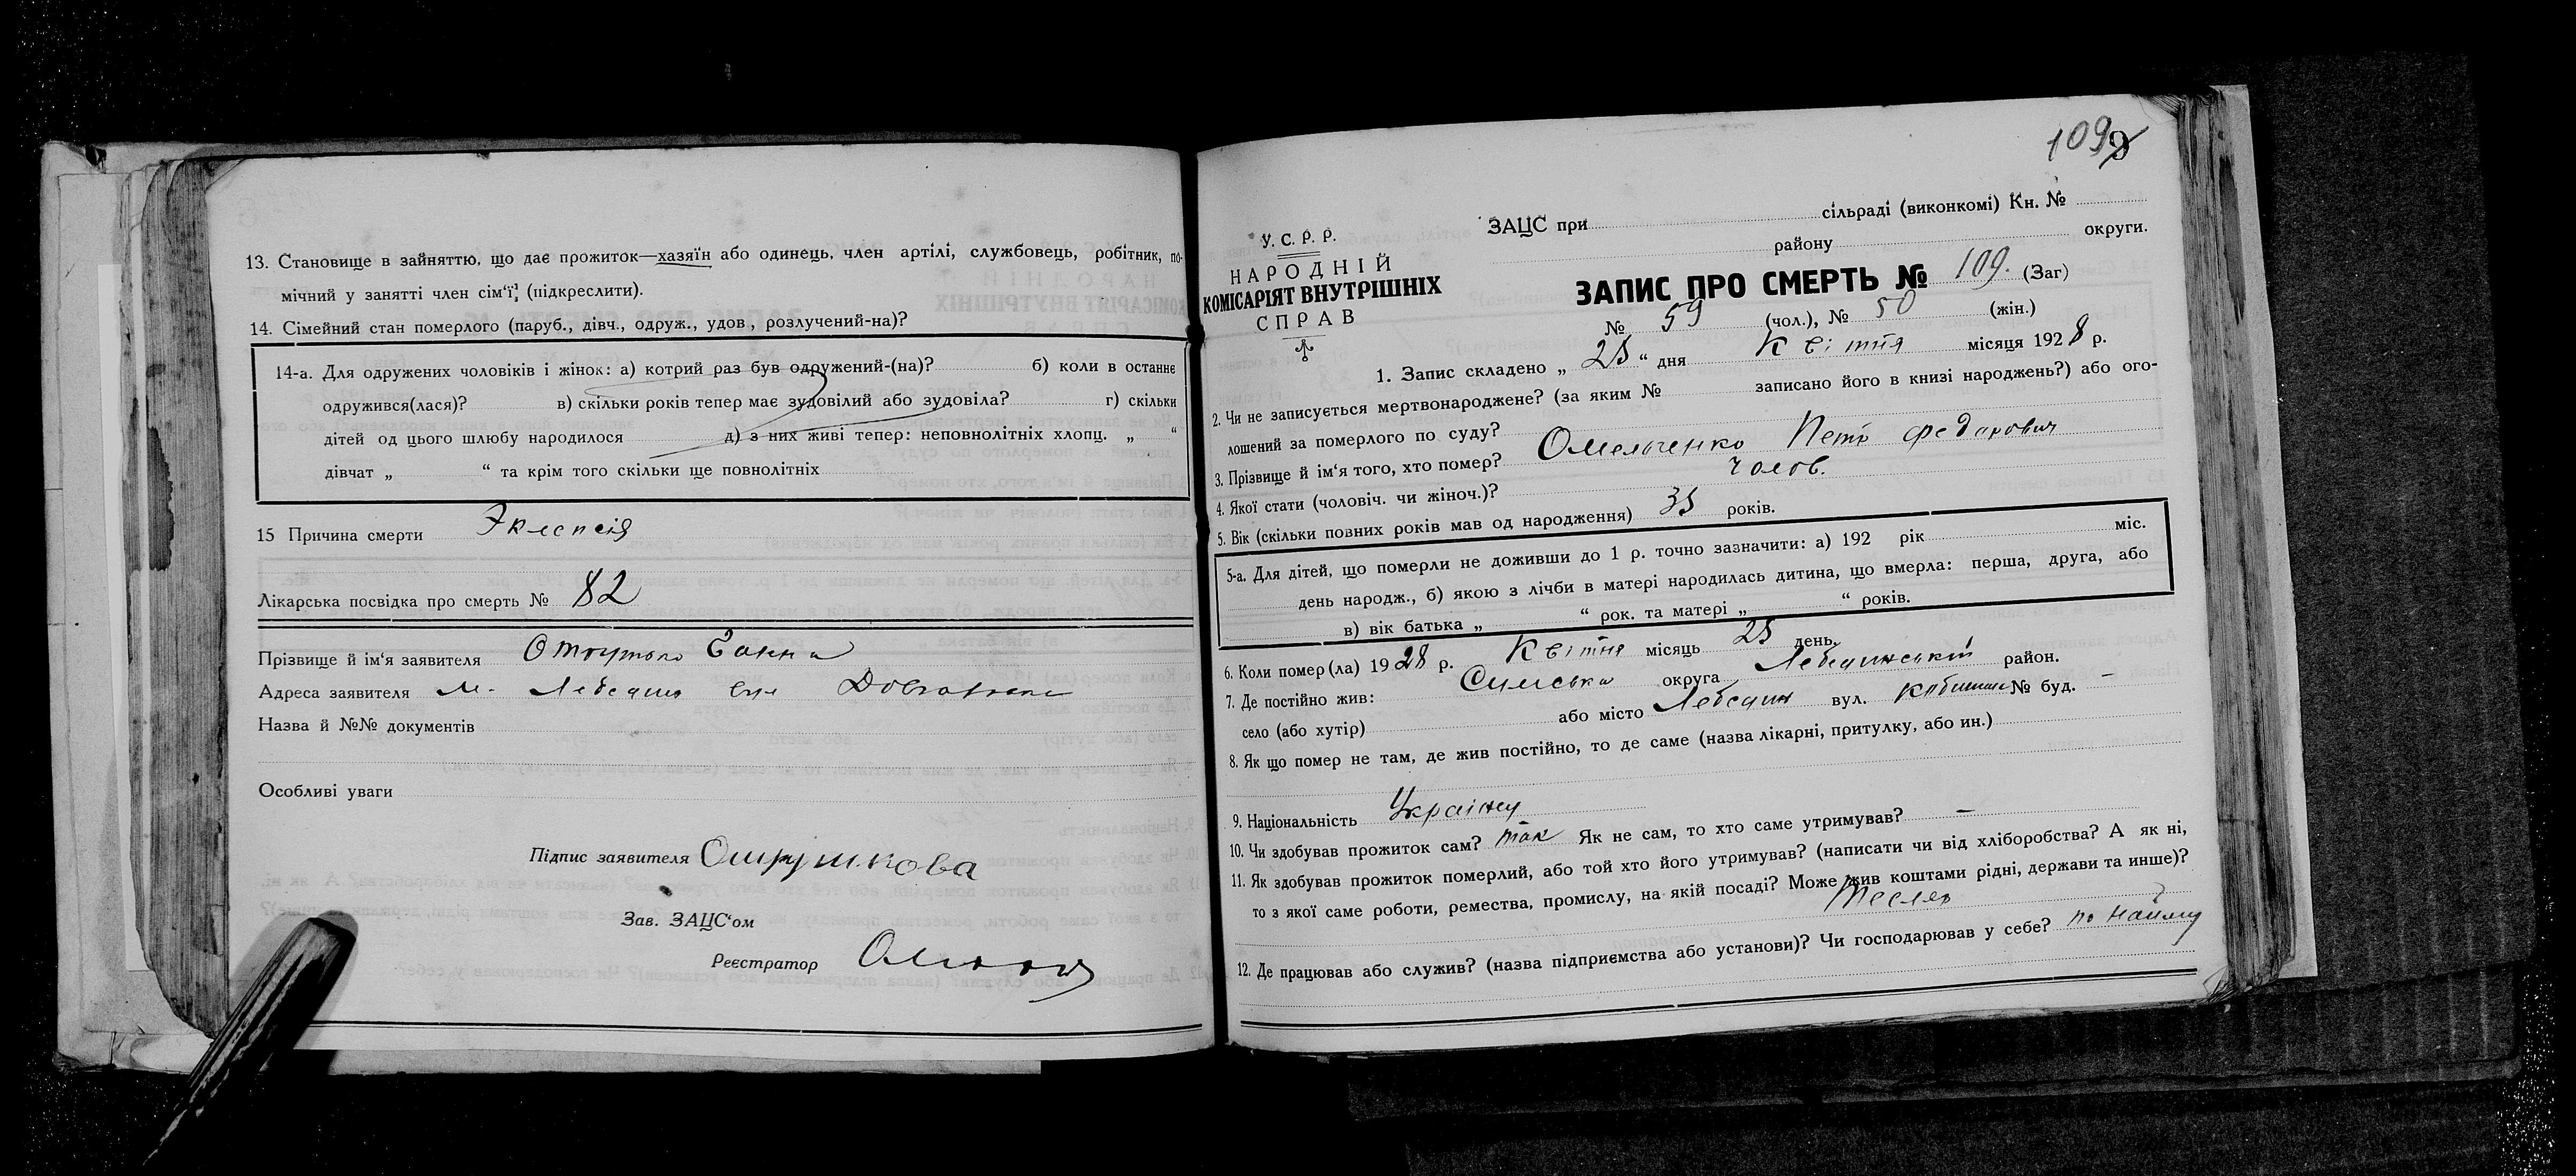 13. Становище в зайняттю, що дає прожиток—хазяїн або одинець, член артілі, службовець, робітник, по-
мічний у занятті член сім'ї, (підкреслити).
14. Сімейний стан померлого (паруб., дівч., одруж., удов, розлучений-на)?
14-а. Для одружених чоловіків і жінок: а) котрий раз був одружений-(на)? б) коли в останнє
одружився(лася)? в) скільки років тепер має зудовілий або зудовіла? г) скільки
дітей од цього шлюбу народилося д) з них живі тепер: неповнолітніх хлопц. „ “
дівчат „ “ та крім того скільки ще повнолітніх
15 Причина смерти
Лікарська посвідка про смерть № 82
Прізвище й ім'я заявителя
Адреса заявителя м. Лебедин вул
Назва й №№ документів
Особливі уваги
Підпис заявителя
Зав. ЗАЦС'ом
Реєстратор
1099
У. С. Р. Р.
НАРОДНІЙ
КОМІСАРІЯТ ВНУТРІШНІХ
СПРАВ
ЗАЦС при сільраді (виконкомі) Кн. №
району округи.
ЗАПИС ПРО СМЕРТЬ № 109. (Заг)
№ 59 (чол.), № 50 (жін.)
1. Запис складено „ 25 “ дня Квітня місяця 1928 р.
2. Чи не записується мертвонароджене? (за яким № записано його в книзі народжень?) або ого-
лошений за померлого по суду?
3. Прізвище й ім'я того, хто помер? Омельченко Петр Федорович
4. Якої стати (чоловіч. чи жіноч.)? Чолов.
5. Вік (скільки повних років мав од народження) 35 років.
5-а. Для дітей, що померли не доживши до 1 р. точно зазначити: а) 192 рік міс.
день народж., б) якою з лічби в матері народилась дитина, що вмерла: перша, друга, або
в) вік батька „ “ рок. та матері „ “ років.
6. Коли помер(ла) 1928 р. Квітня місяць 25 день.
7. Де постійно жив: Сумська округа Лебединський район.
село (або хутір) або місто Лебедин вул. № буд. -
8. Як що помер не там, де жив постійно, то де саме (назва лікарні, притулку, або ин.)
9. Національність Українец
10. Чи здобував прожиток сам? так Як не сам, то хто саме утримував? —
11. Як здобував прожиток померлий, або той хто його утримував? (написати чи від хліборобства? А як ні,
то з якої саме роботи, ремества, промислу, на якій посаді? Може жив коштами рідні, держави та инше)?
Тесляр
12. Де працював або служив? (назва підприємства або установи)? Чи господарював у себе? по найму